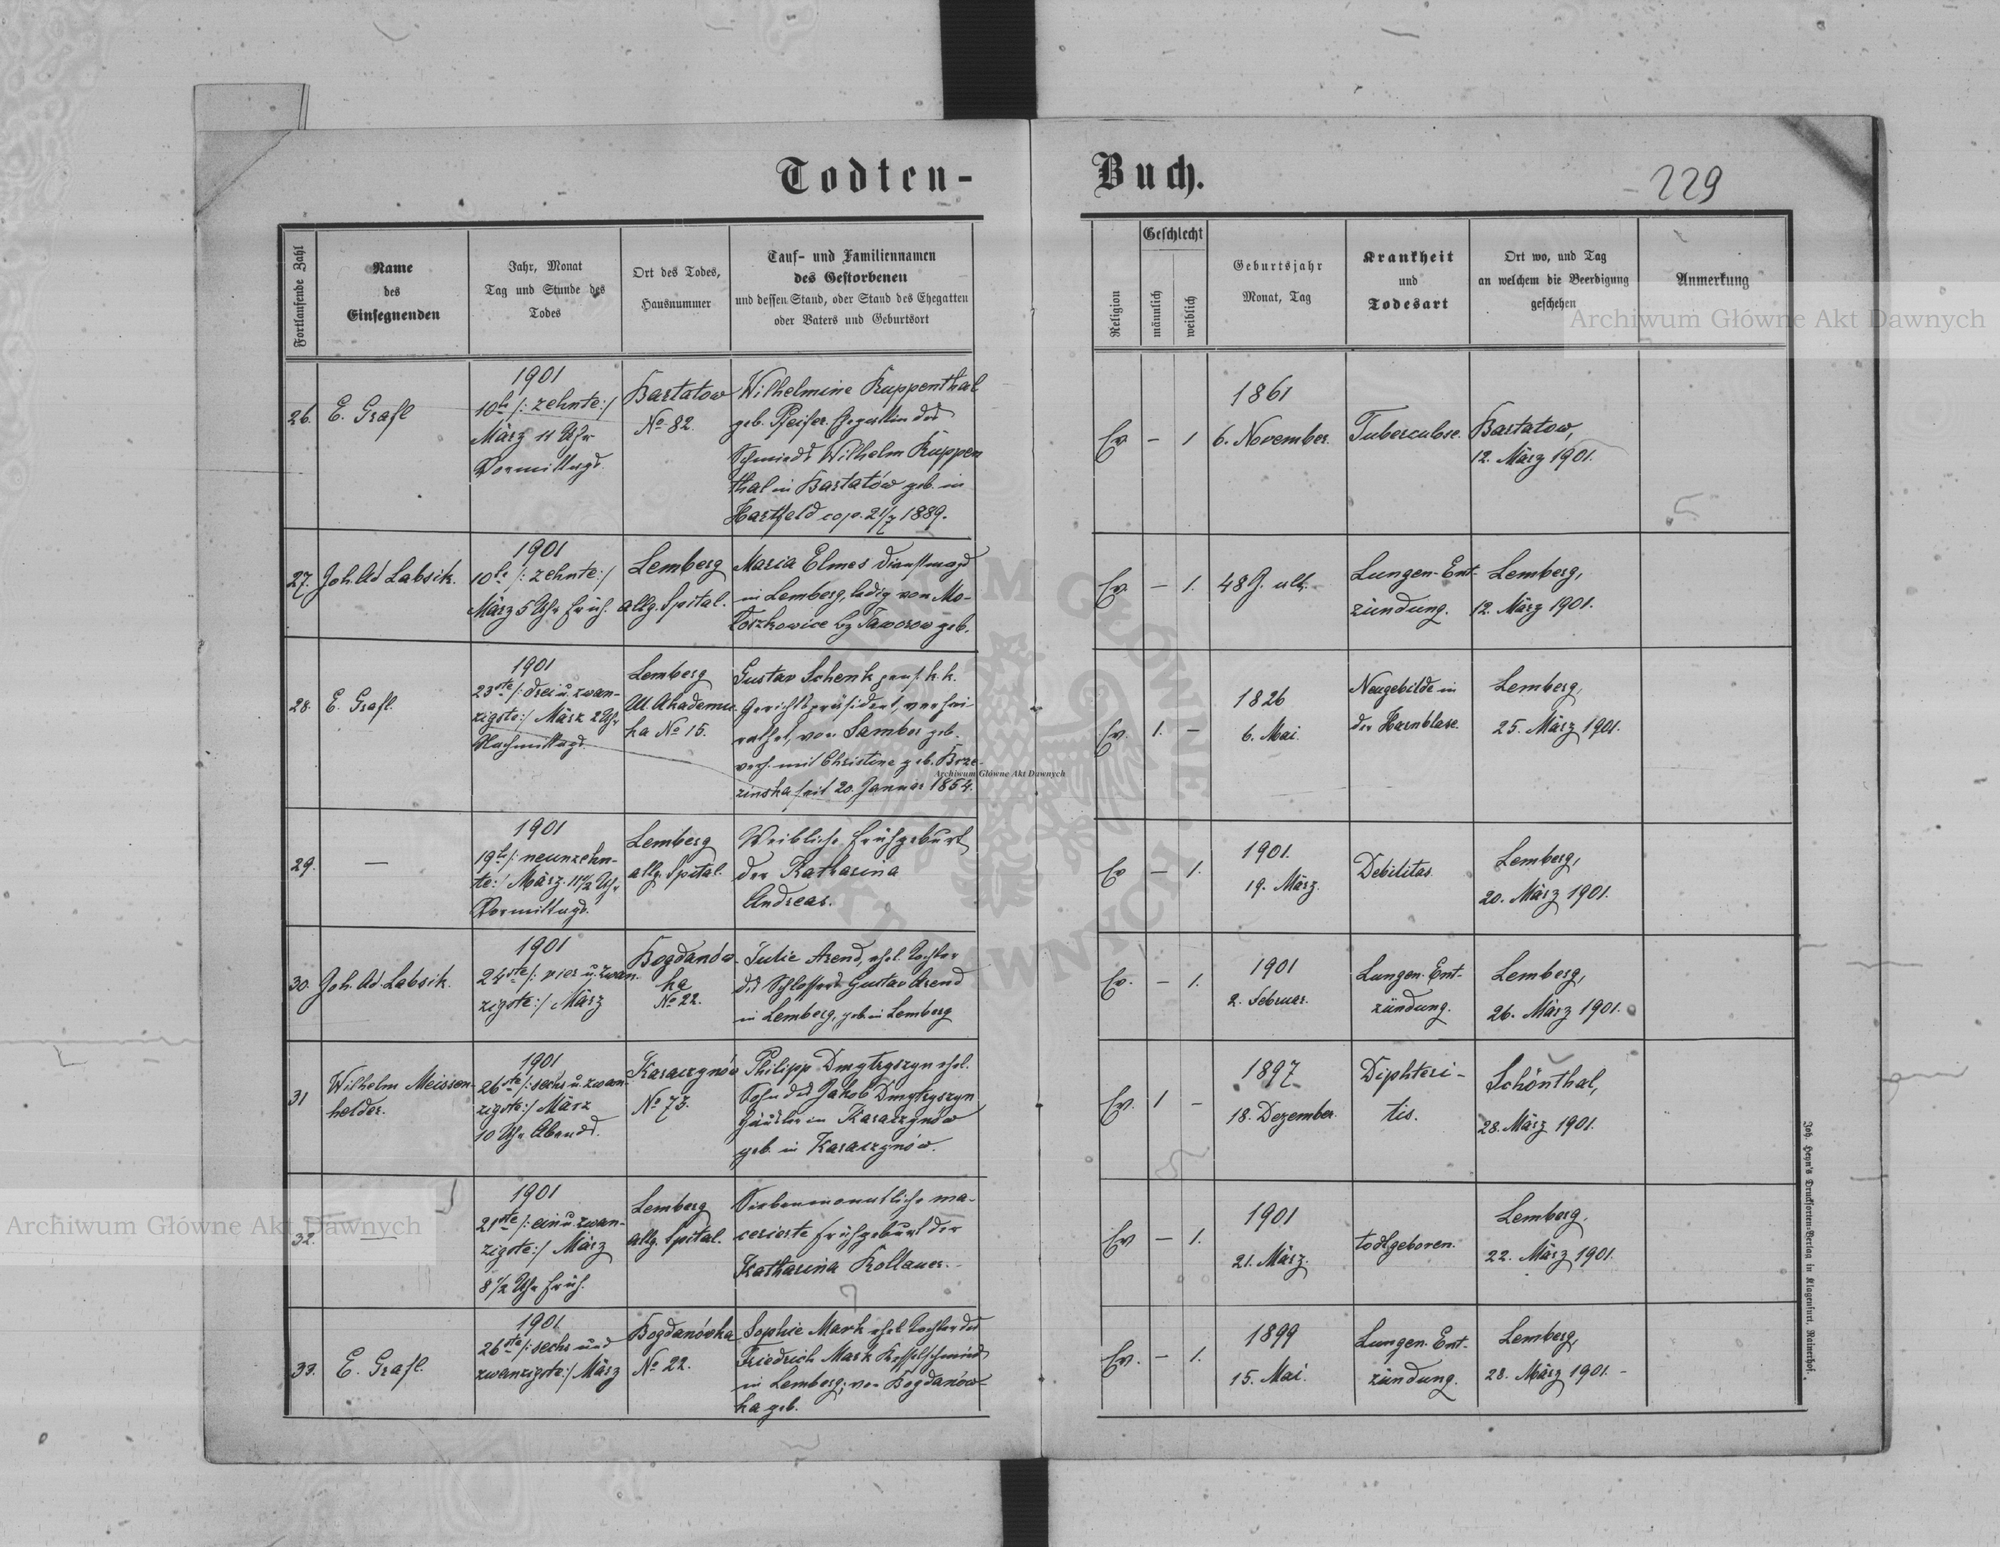 Todten-
Buch.
229
Fortlaufende Zahl
Name
des
Einsegnenden
Jahr, Monat
Tag und Stunde des
Todes
Ort des Todes,
Hausnummer
Tauf- und Familiennamen
des Gestorbenen
und dessen Stand, oder Stand des Ehegatten
oder Vaters und Geburtsort
Religion
Geschlecht
männlich
weiblich
Geburtsjahr
Monat, Tag
Krankheit
und
Todesart
Ort wo, und Tag
an welchem die Beerdigung
geschehen
Anmerkung
26.
E. Grafl
1901
10te /: zehnte :/
März 11 Uhr
Vormittags.
Bartatow
No 82.
Wilhelmine Kuppenthal
geb. Pfeifer Gegattin des
Schmieds Wilhelm Kuppen
thal in Bartatów geb. in
Hartfeld cop. 21/7 1889.
Ev
–
1
1861
6. November.
Tuberculose.
Bartatow,
12. März 1901.
27.
Joh. Ad. Labsik.
1901
10te /: zehnte :/
März 5 Uhr früh.
Lemberg
allg. Spital.
Maria Elmes Dienstmagd
in Lemberg, ledig von Mo-
loszkowice bz Jaworow geb.
Ev.
–
1.
48 J. alt.
Lungen-Ent-
zündung.
Lemberg,
12. März 1901.
28.
E. Grafl
1901
23ste /: drei u. zwan-
zigste :/ März 2 Uhr
Nachmittags.
Lemberg
Ul. Akademic
ka No 15.
Gustav Schenk pens. k. k.
Gerichtspräsident, verhei
rathet, von Sambor geb.
verh. mit Christine geb. Brze-
zinska seit 20. Januar 1854.
Ev.
1.
–
1826
6. Mai.
Neugebilde in
der Harnblase.
Lemberg,
25. März 1901.
29.
—
1901
19te /: neunzehn-
te :/ März 11 1/2 Uhr
Vormittags.
Lemberg
allg. Spital.
Weibliche Frühgeburt
der Katharina
Andreas.
Ev
–
1.
1901.
19. März.
Debilitas.
Lemberg,
20. März 1901.
30.
Joh. Ad. Labsik.
1901
24ste /: vier u. zwan-
zigste :/ März
Bogdanów-
ka
No 22.
Julie Arend, ehel. Tochter
des Schlossers Gustav Arend
in Lemberg, geb. in Lemberg
Ev.
–
1.
1901
2. Februar.
Lungen-Ent-
zündung.
Lemberg,
26. März 1901.
31
Wilhelm Meissen-
helder.
1901
26ste /: sechs u. zwan-
zigste :/ März
10 Uhr Abends.
Karaczynów
No 73.
Philipp Dmytryszyn ehel.
Sohn des Jakob Dmytryszyn
Häusler in Karaczynów
geb. in Karaczynów.
Ev.
1
–
1897
18. Dezember.
Diphteri-
tis.
Schönthal,
28. März 1901.
32.
—
1901
21ste /: ein u. zwan-
zigste :/ März
8 1/2 Uhr früh.
Lemberg
allg. Spital.
Siebenmonatliche ma-
cerierte Frühgeburt der
Katharina Kollauer.
Ev
–
1.
1901
21. März.
todtgeboren.
Lemberg.
22. März 1901.
33.
E. Grafl.
1901
26ste /: sechs und
zwanzigste :/ März
Bogdanówka
No 22.
Sophie Mark ehel. Tochter des
Friedrich Mark Kesselschmied
in Lemberg; von Bogdanów-
ka geb.
Ev.
–
1.
1899
15. Mai.
Lungen-Ent-
zündung.
Lemberg,
28. März 1901.
Joh. Heyn's Drucksorten-Verlag in Klagenfurt, Rainerhof.
Archiwum Główne Akt Dawnych
Archiwum Główne Akt Dawnych
Archiwum Główne Akt Dawnych